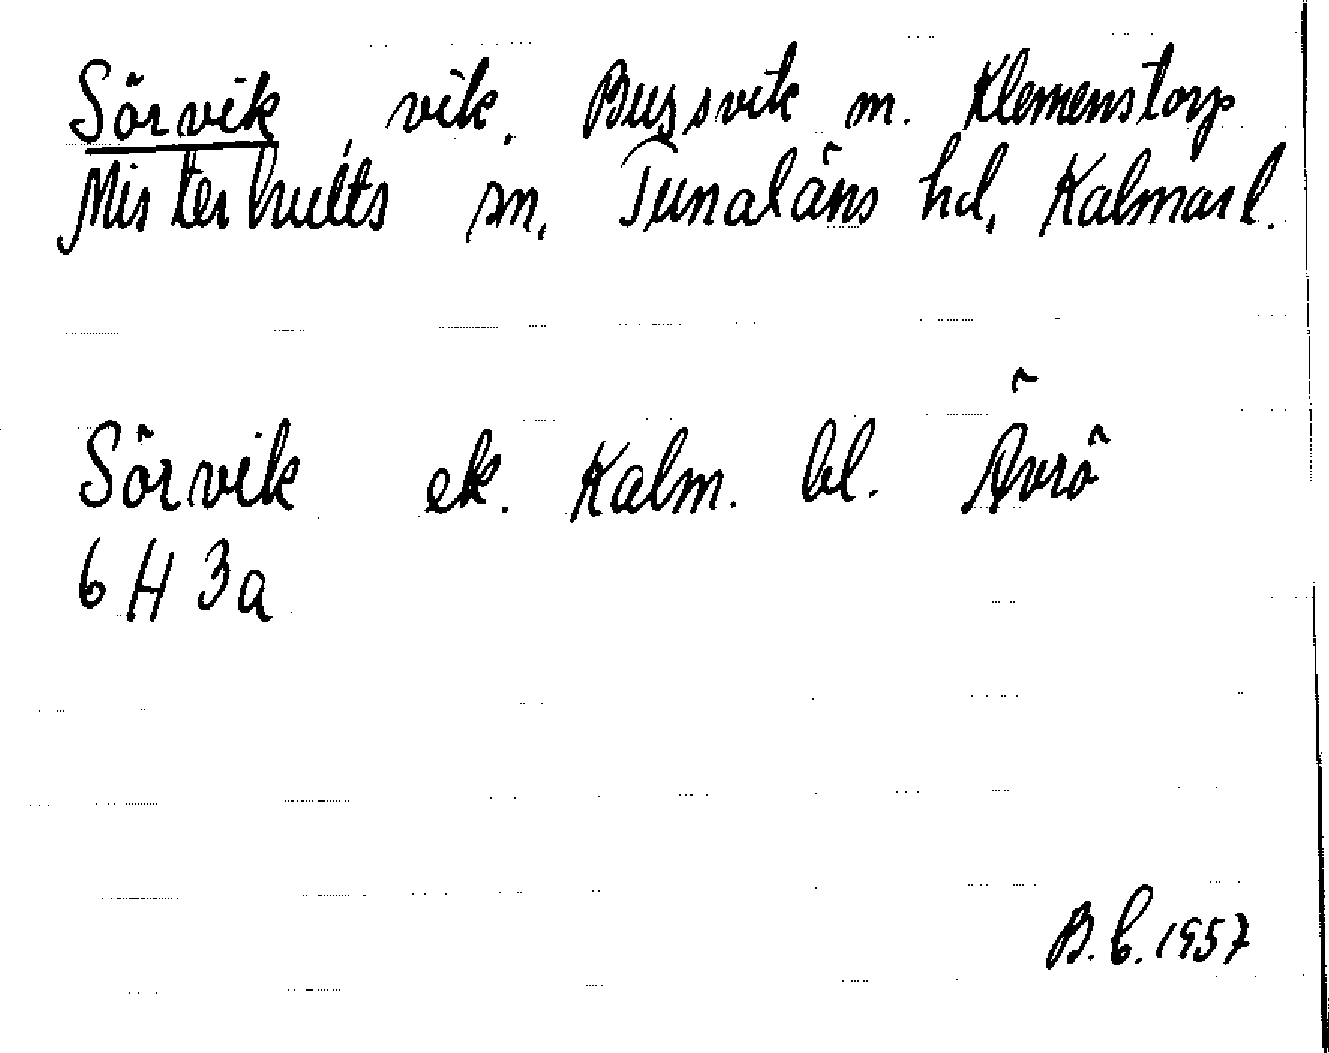 Sörvik, vik. Bussvik m. Klemenstorp
Misterhults sn. Tunaläns hd, Kalmar l.
Sörvik ek. Kalm. bl. Ävrö
6 H 3a
B.b. 1957